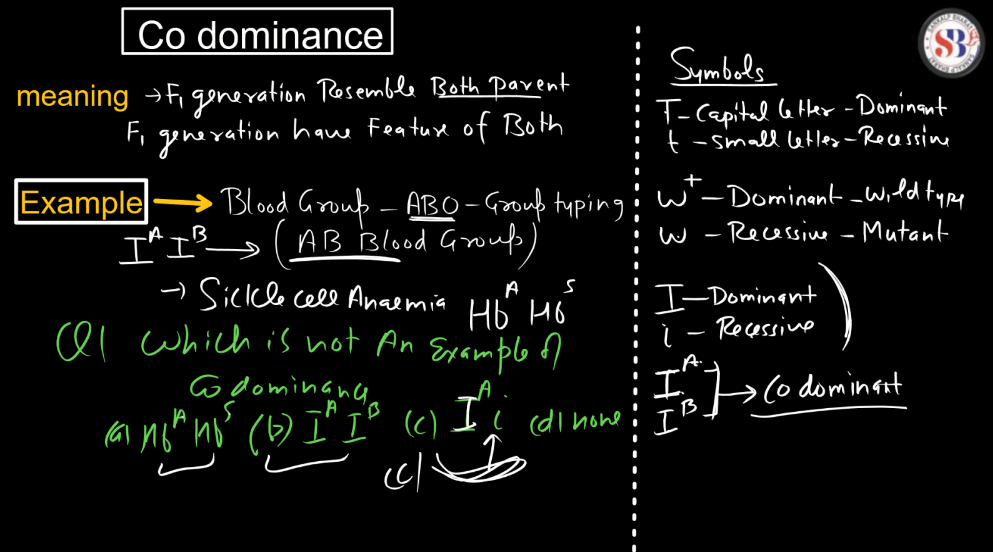 Co dominance
meaning → F₁ generation Resemble Both Parent
F₁ generation have Feature of Both
Example → Blood Group - ABO - Group typing
Iᴬ Iᴮ → (AB Blood Group)
→ Sickle cell Anaemia Hbᴬ Hbˢ
Q1 Which is not An Example of
Co dominance
(a) Hbᴬ Hbˢ (b) Iᴬ Iᴮ (c) Iᴬ i (d) none
(c)
Symbols
T - Capital letter - Dominant
t - small letter - Recessive
W⁺ - Dominant - Wild type
W - Recessive - Mutant
I - Dominant
i - Recessive
Iᴬ
Iᴮ → Co dominant
SB